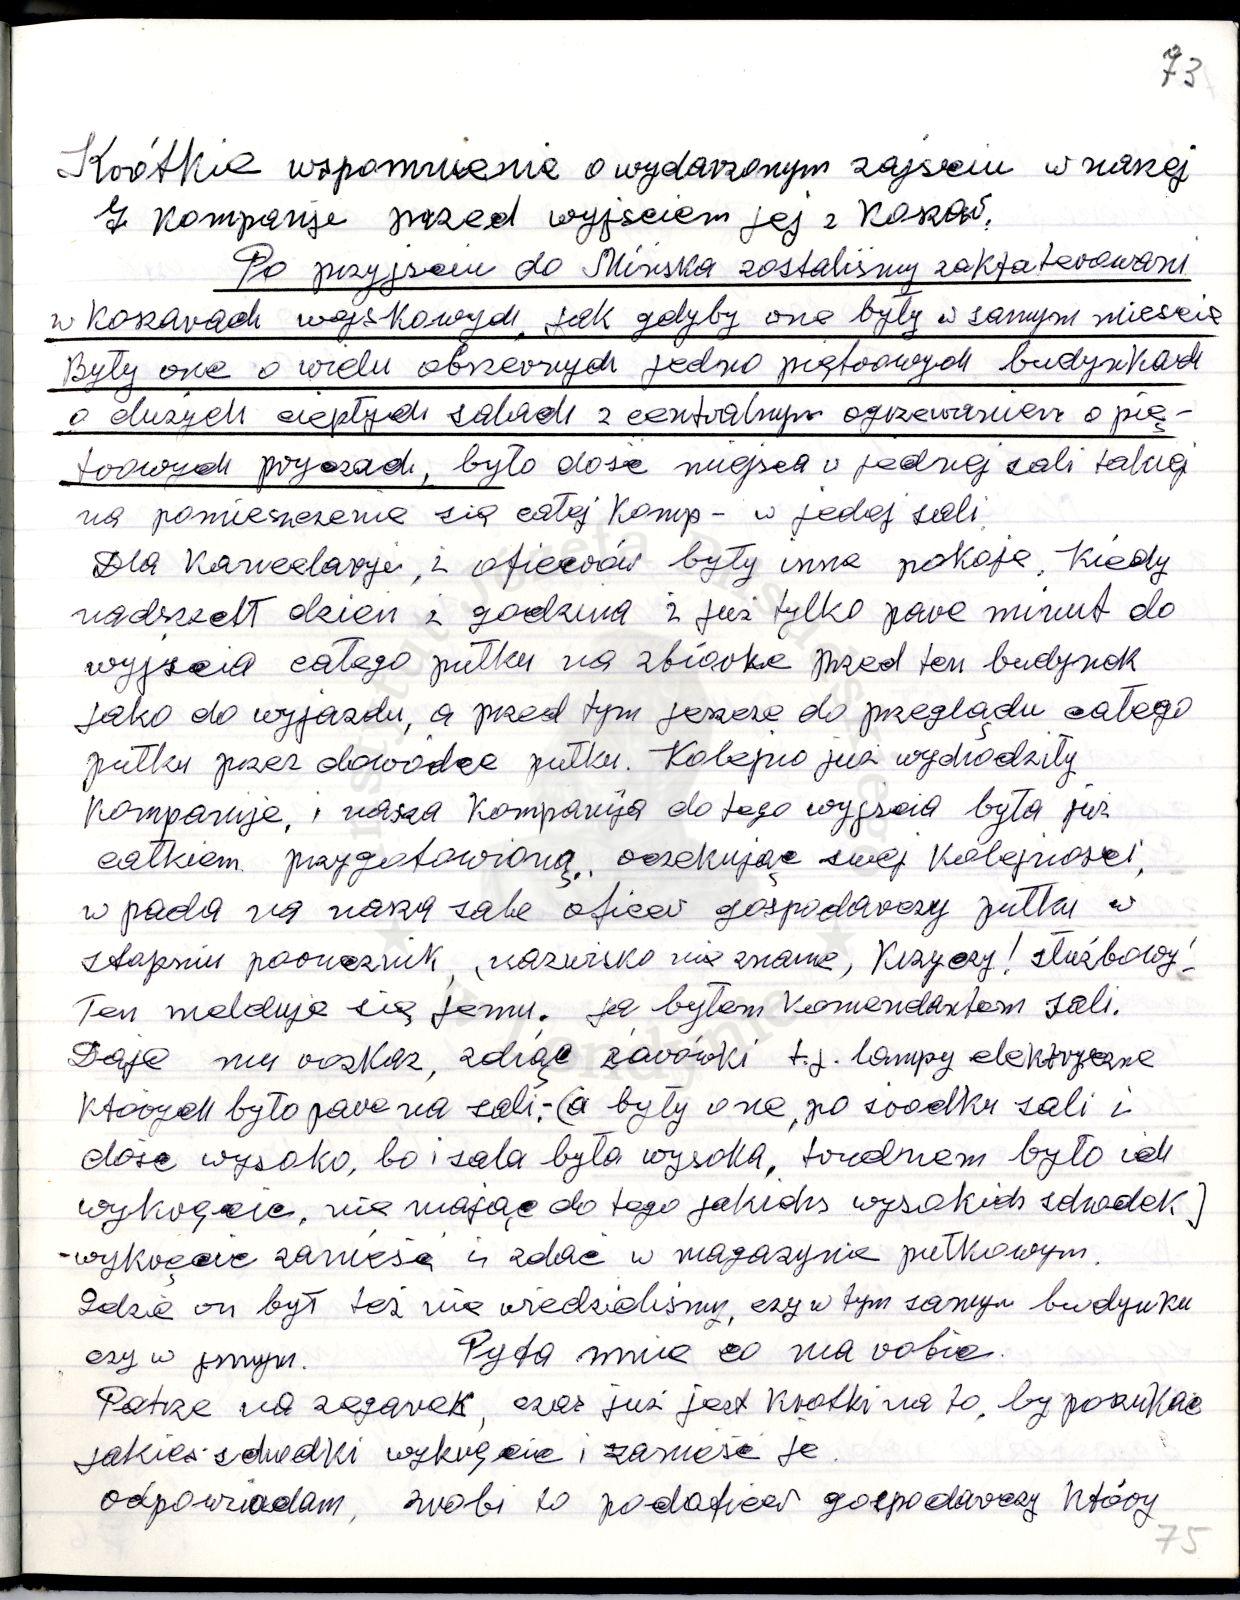 73
Krótkie wspomnienie o wydarzonym zajściu w naszej
7 Kompanije przed wyjściem jej z Koszar.
Po przyjściu do Mińska zostaliśmy zakfaterowani
w Koszarach wojskowych, jak gdyby one były w samym mieście
Były one o wielu obszernych jedno piętrowych budynkach
o dużych ciepłych salach z centralnym ogrzewaniem o pię-
trowych pryczach, było dość miejsca w jednej sali takiej
na pomieszczenie się całej Komp- w jedej sali.
Dla Kancelaryji, i oficerów były inne pokoje. Kiedy
nadszedł dzień i godzina i już tylko pare minut do
wyjścia całego pułku na zbiorke przed ten budynek
jako do wyjazdu, a przed tym jeszcze do przeglądu całego
pułku przez dowódce pułku. Kolejno już wychodziły
Kompanije, i nasza Kompanija do tego wyjścia była już
całkiem przygotowioną, oczekując swej Kolejności,
w pada na naszą sale oficer gospodarczy pułku w
stopniu porucznik, nazwisko nie znane, Krzyczy! służbowy!
Ten melduje się jemu. ja byłem Komendantem sali.
Daje mu rozkaz, zdjąć żarówki t.j. lampy elektryczne
których było pare na sali,-(a były one, po środku sali i
dość wysoko, bo i sala była wysoka, trudnem było ich
wykręcić, nie mając do tego jakichs wysokich schodek)
-wykręcić zanieść i zdać w magazynie pułkowym.
Gdzie on był też nie wiedzieliśmy, czy w tym samym budynku
czy w jnnym. Pyta mnie co ma robić.
Patrze na zegarek, czas już jest krótki na to, by poszukać
jakies schodki wykręcić i zanieść je.
odpowiadam, zrobi to podoficer gospodarczy który
75